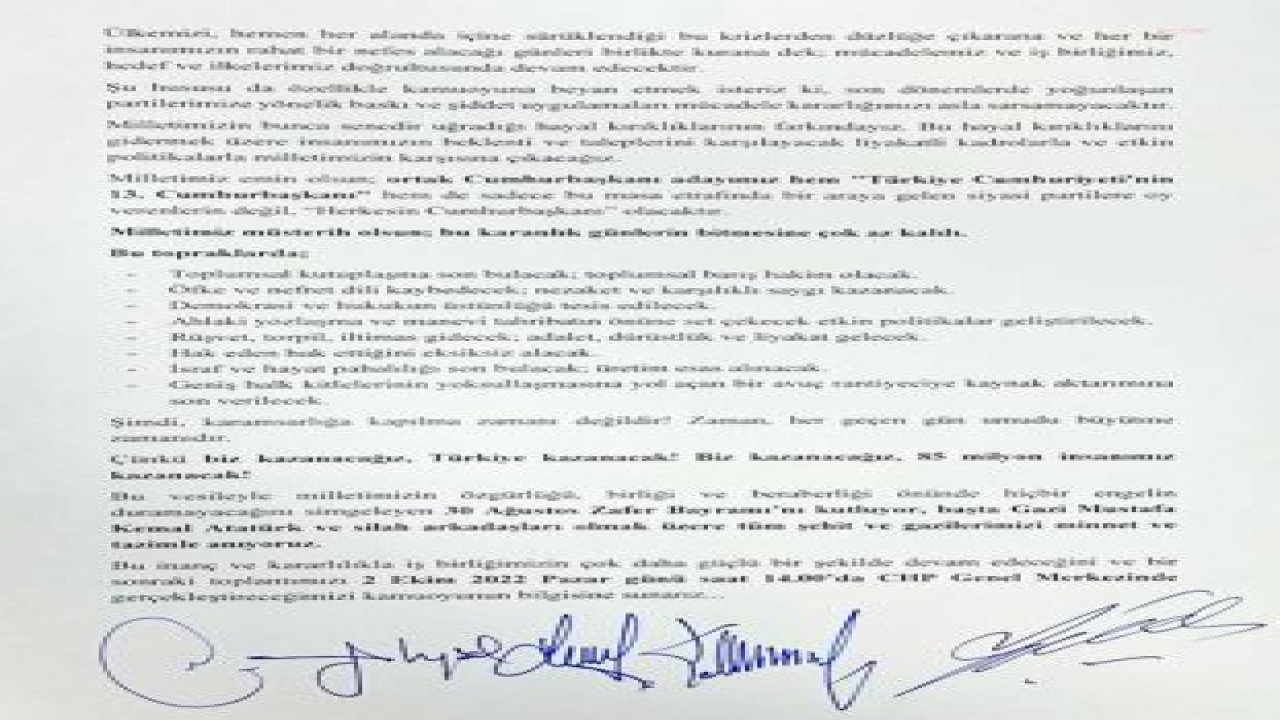 Ülkemizi, hemen her alanda içine sürüklendiği bu krizlerden düzlüğe çıkarana ve her bir
insanımızın rahat bir nefes alacağı günleri birlikte kurana dek, mücadelemiz ve iş birliğimiz,
hedef ve ilkelerimiz doğrultusunda devam edecektir.
Şu hususu da özellikle kamuoyuna beyan etmek isteriz ki, son dönemlerde yoğunlaşan
partilerimize yönelik baskı ve şiddet uygulamaları mücadele kararlığımızı asla sarsamayacaktır.
Milletimizin bunca senedir uğradığı hayal kırıklıklarının farkındayız. Bu hayal kırıklıklarını
gidermek üzere insanımızın beklenti ve taleplerini karşılayacak liyakatli kadrolarla ve etkin
politikalarla milletimizin karşısına çıkacağız.
Milletimiz emin olsun; ortak Cumhurbaşkanı adayımız hem "Türkiye Cumhuriyeti'nin
13. Cumhurbaşkanı" hem de sadece bu masa etrafında bir araya gelen siyasi partilere oy
verenlerin değil, "Herkesin Cumhurbaşkanı" olacaktır.
Milletimiz müsterih olsun; bu karanlık günlerin bitmesine çok az kaldı.
Bu topraklarda;
- Toplumsal kutuplaşma son bulacak; toplumsal barış hakim olacak.
- Öfke ve nefret dili kaybedecek; nezaket ve karşılıklı saygı kazanacak.
- Demokrasi ve hukukun üstünlüğü tesis edilecek.
- Ahlaki yozlaşma ve manevi tahribatın önüne set çekecek etkin politikalar geliştirilecek.
- Rüşvet, torpil, iltimas gidecek; adalet, dürüstlük ve liyakat gelecek.
- Hak eden hak ettiğini eksiksiz alacak.
- İsraf ve hayat pahalılığı son bulacak; üretim esas alınacak.
- Geniş halk kitlelerinin yoksullaşmasına yol açan bir avuç rantiyeciye kaynak aktarımına
son verilecek.
Şimdi, karamsarlığa kapılma zamanı değildir! Zaman, her geçen gün umudu büyütme
zamanıdır.
Çünkü biz kazanacağız, Türkiye kazanacak! Biz kazanacağız, 85 milyon insanımız
kazanacak!
Bu vesileyle milletimizin özgürlüğü, birliği ve beraberliği önünde hiçbir engelin
duramayacağını simgeleyen 30 Ağustos Zafer Bayramı'nı kutluyor, başta Gazi Mustafa
Kemal Atatürk ve silah arkadaşları olmak üzere tüm şehit ve gazilerimizi minnet ve
tazimle anıyoruz.
Bu inanç ve kararlılıkla iş birliğimizin çok daha güçlü bir şekilde devam edeceğini ve bir
sonraki toplantımızı 2 Ekim 2022 Pazar günü saat 14.00'da CHP Genel Merkezinde
gerçekleştireceğimizi kamuoyunun bilgisine sunarız...